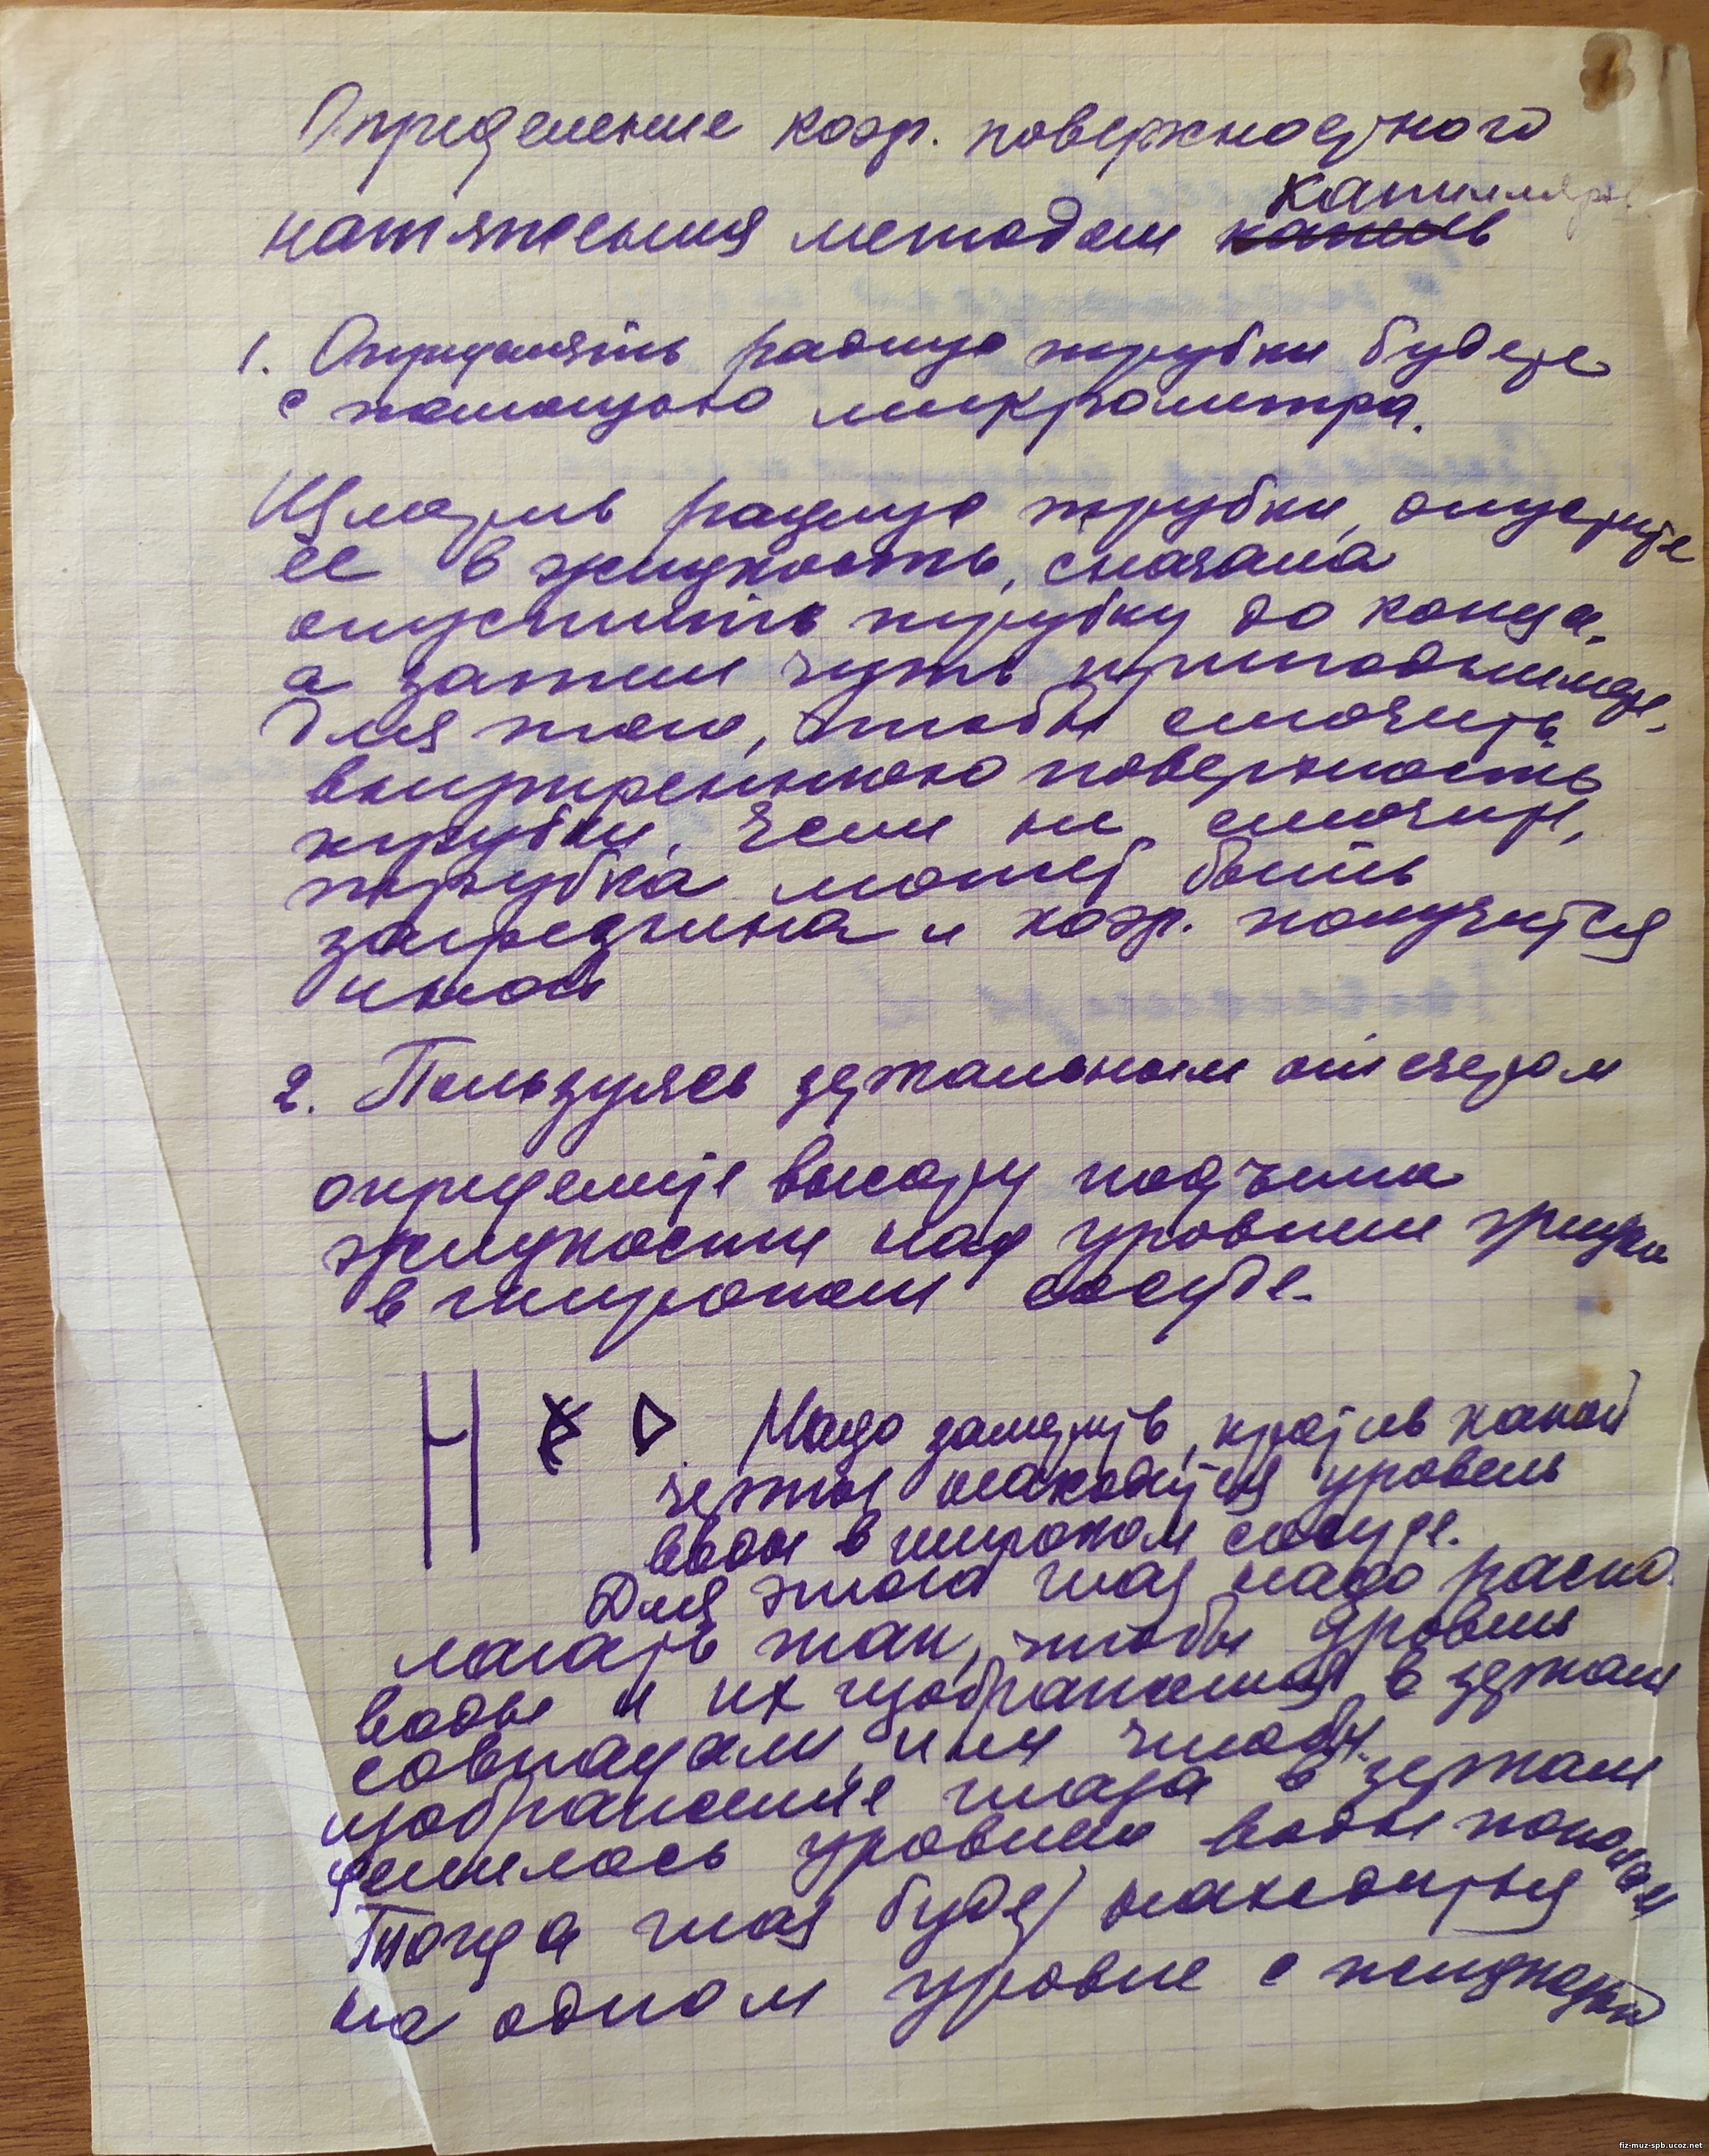 Определение коэф. поверхностного
капилляров
натяжения методом капель
1. Определять радиус трубки будете
с помощью микрометра.
Измерив радиус трубки, опустите
ее в жидкость, сначала
опустить трубку до конца,
а затем чуть приподнимать.
Для того, чтобы смочить
внутреннюю поверхность
трубки. Если не смочить,
трубка может быть
загрязнена и коэф. получится
иной
2. Пользуясь зеркальным отсчетом
определите высоту подъема
жидкости над уровнем жидк
в широком сосуде.
Надо замерить, против какой
черты находится уровень
воды в широком сосуде.
Для этого глаз надо распо
лагать так, чтобы уровень
воды и их изображения в зеркале
совпадали, или чтобы
изображение глаза в зеркале
делилось уровнем воды пополам
Тогда глаз будет находиться
на одном уровне с жидкостью
fiz-muz-spb.ucoz.net